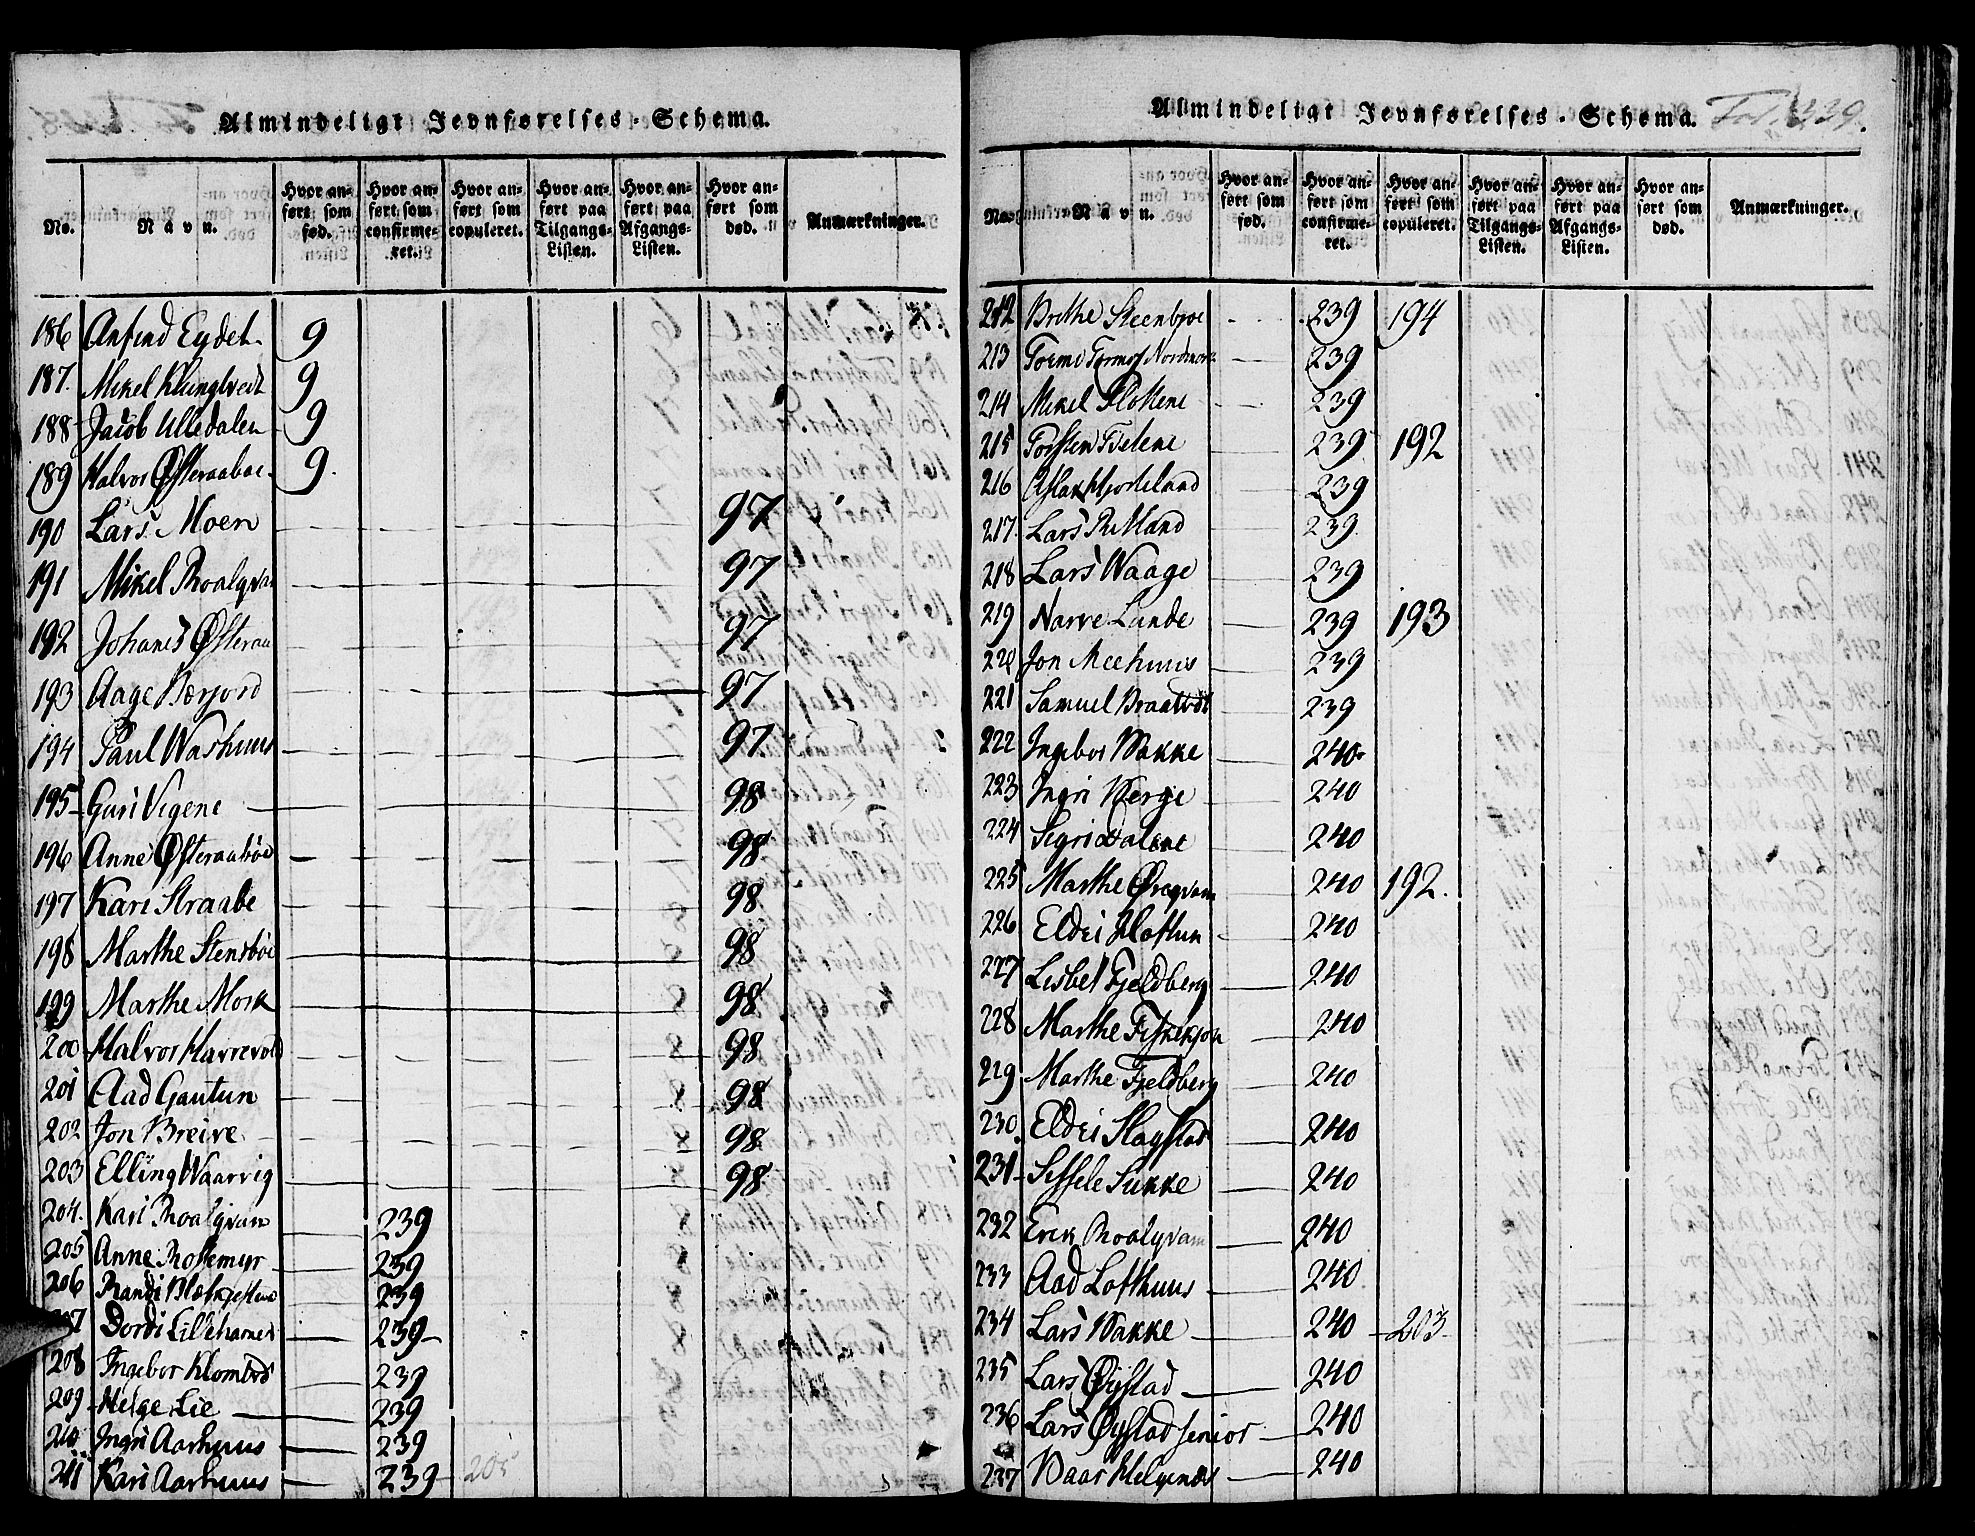 Almindeligt Jevnførelses-Schema.
No. Navn. Hvor anført som fød. Hvor anført som confirmeret. Hvor anført som copuleret. Hvor anført paa Tilgangs-Listen. Hvor anført paa Afgangs-Listen. Hvor anført som død. Anmærkninger.
186 Anfind Eydet 9
187. Mikel Klunglvedt 9
188 Jacob Ulledalen 9
189 Halvor Østeraaboe 9.
190 Lars Moen 97
191 Mikel Roalqva 97
192 Johanes Østeraa 97
193 Aage Bærjord 97
194 Paul Washuus 97
195 Guri Vigene 98
196 Anne Østeraaböe 98
197 Kari Straabe 98
198 Marthe Stensböe 98
199 Marthe Mosk 98
200 Halvor Havrevold 98
201 Aad Gautun 98
202 Jon Breive 98
203 Elling Waarvig 98
204. Kari Roalqvam 239
205 Anne Rossemyr 239
206 Randi 239
207 Dordi Lillehamer 239
208 Ingebor Klombrd 239
209 Helge Lie 239
210 Ingri Aarhuus 239
211 Kari Aarhuus 239 205
Almindeligt Jevnførelses-Schema. Fol. 239.
No. Navn. Hvor anført som fød. Hvor anført som confirmeret. Hvor anført som copuleret. Hvor anført paa Tilgangs-Listen. Hvor anført paa Afgangs-Listen. Hvor anført som død. Anmærkninger.
212 Brithe Steenbroe 239 194
213 Tormo 239
214 Mikel Flottene 239
215 Torsten Tvetene 239 192
216 Aslak Hjorteland 239
217. Lars Rilland 239
218 Lars Waage 239
219 Narve Lande 239 193
220 Jon Meehuus 239
221 Samuel Braatvedt 239
222 Ingebor Bakke 240
223 Ingri Berge 240
224 Sigri Dalene 240
225 Marthe Øreqvam 240 192.
226 Eldri Hoftun 240
227 Lisbet Fjeldberg 240
228 Marthe 240
229 Marthe Fjeldberg 240
230. Eldri Slagstad 240
231 Sissele Sukke 240
232 Erik Roalqvam 240
233 Aad Lofthuus 240
234 Lars Bakke 240 203
235 Lars Øystad 240
236 Lars Øystad senior 240
237 Baar Helgenæs 240